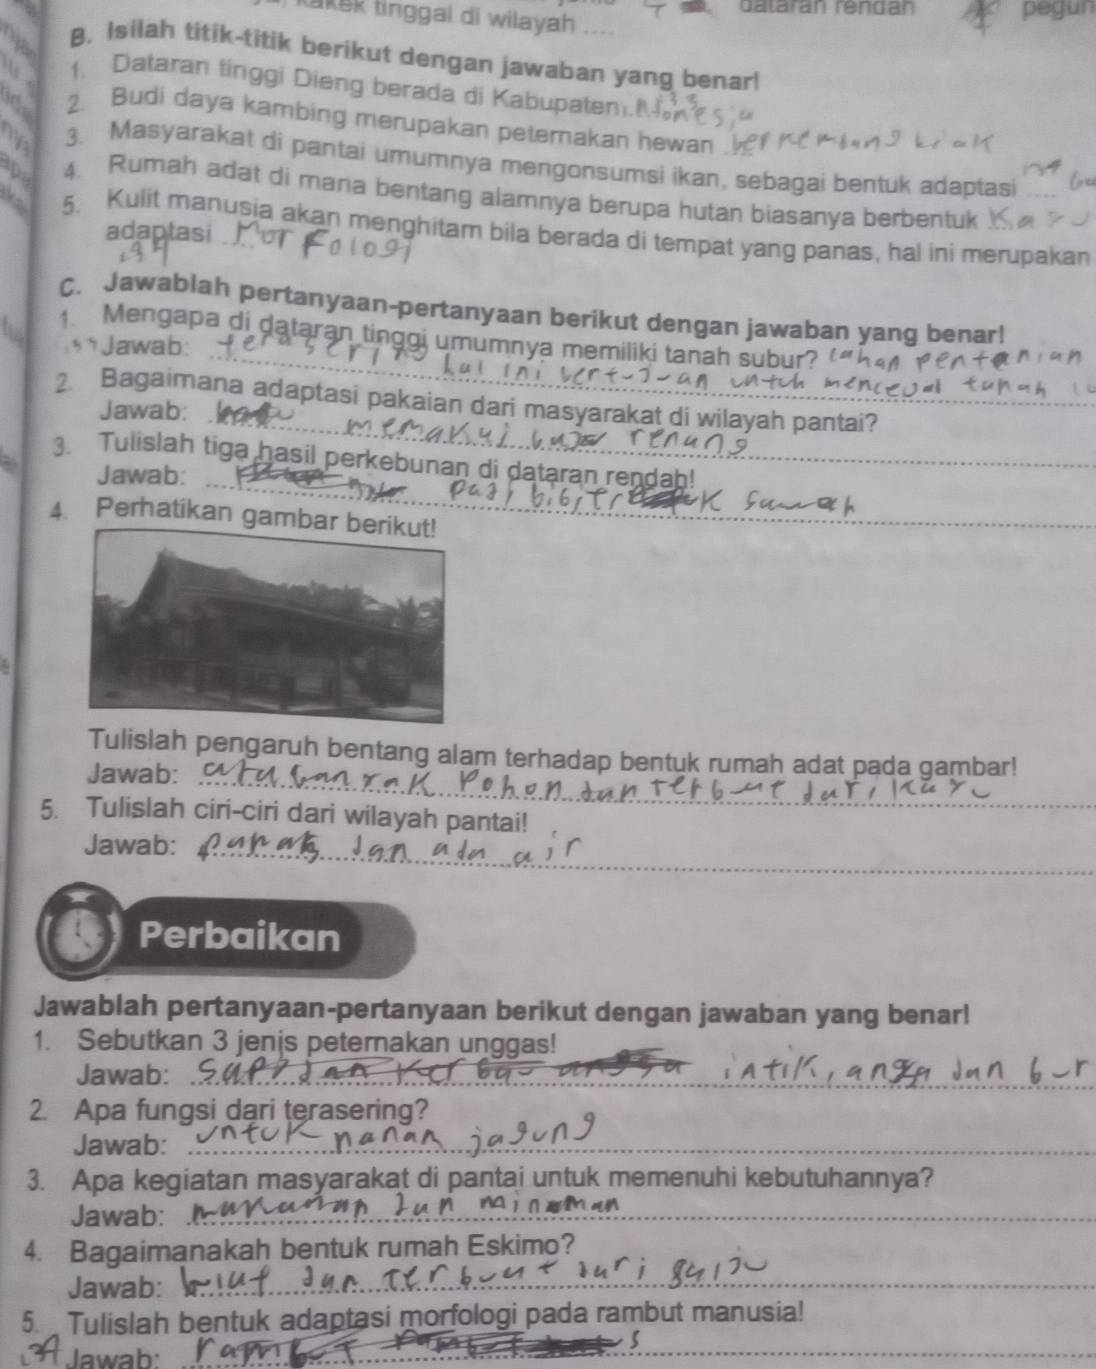 kakek tinggal di wilayah .... dataran rendah pegun
B. Isilah titik-titik berikut dengan jawaban yang benar!
1. Dataran tinggi Dieng berada di Kabupaten
2. Budi daya kambing merupakan peternakan hewan
3. Masyarakat di pantai umumnya mengonsumsi ikan, sebagai bentuk adaptasi ....
4. Rumah adat di mana bentang alamnya berupa hutan biasanya berbentuk
5. Kulit manusia akan menghitam bila berada di tempat yang panas, hal ini merupakan
adaptasi Morfologi
C. Jawablah pertanyaan-pertanyaan berikut dengan jawaban yang benar!
1. Mengapa di dataran tinggi umumnya memiliki tanah subur? lahan pentanian
Jawab: terasering hal ini bertujuan untuh
2. Bagaimana adaptasi pakaian dari masyarakat di wilayah pantai?
Jawab: memakui baju renang
3. Tulislah tiga hasil perkebunan di dataran rendah!
Jawab: padi, bibit
4. Perhatikan gambar berikut!
Tulislah pengaruh bentang alam terhadap bentuk rumah adat pada gambar!
Jawab: ada banyak Pohon dan terbuat dari kayu
5. Tulislah ciri-ciri dari wilayah pantai!
Jawab: panas dan ada air
Perbaikan
Jawablah pertanyaan-pertanyaan berikut dengan jawaban yang benar!
1. Sebutkan 3 jenis peternakan unggas!
Jawab: intik, angsa dan bur
2. Apa fungsi dari terasering?
Jawab: untuk nanan jagung
3. Apa kegiatan masyarakat di pantai untuk memenuhi kebutuhannya?
Jawab: makanan dan minuman
4. Bagaimanakah bentuk rumah Eskimo?
Jawab: dan terbuat dari salju
5. Tulislah bentuk adaptasi morfologi pada rambut manusia!
Jawab: rambut